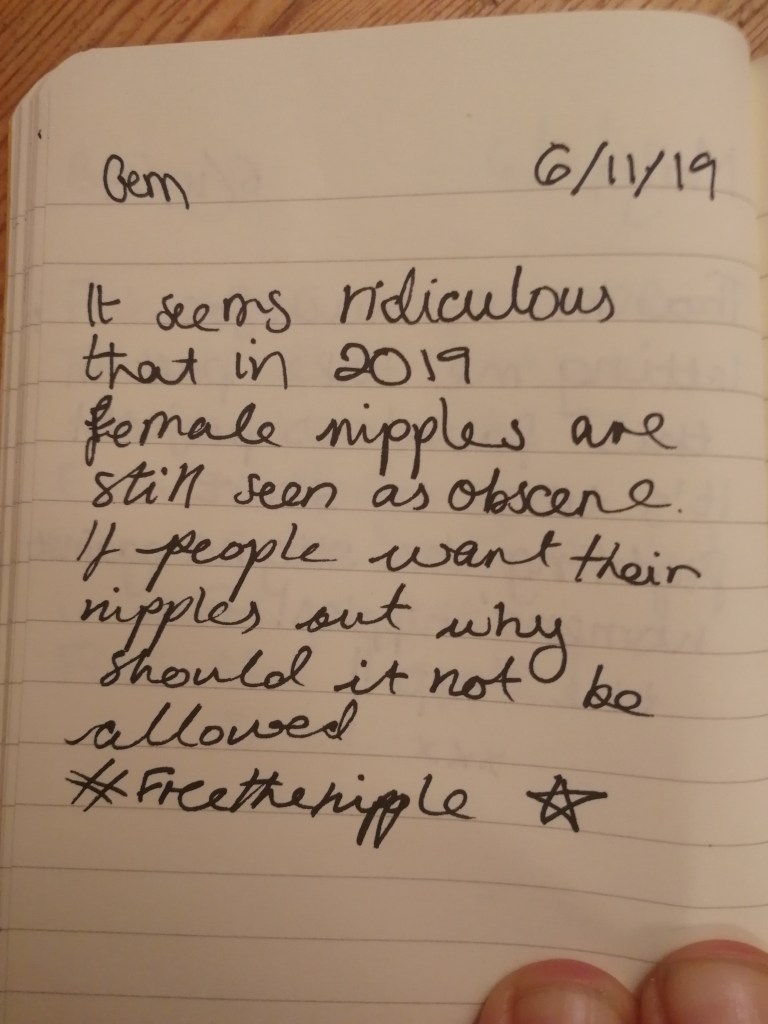 Gem 6/11/19
It seems ridiculous
that in 2019
female nipples are
still seen as obscene.
If people want their
nipples out why
should it not be
allowed
#Freethenipple